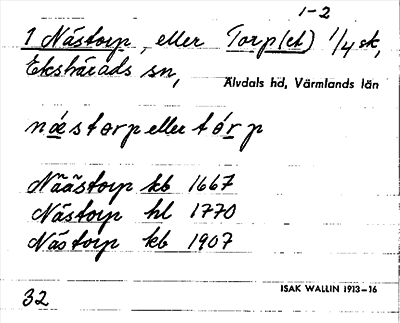 1-2
1 Nästorp, eller Torp(et) 1/4 sk,
Ekshärads sn,
Älvdals hd, Värmlands län
næstorp eller tórp
Näästorp kb 1667
Nästorp hl 1770
Nästorp kb 1907
ISAK WALLIN 1913-16
32